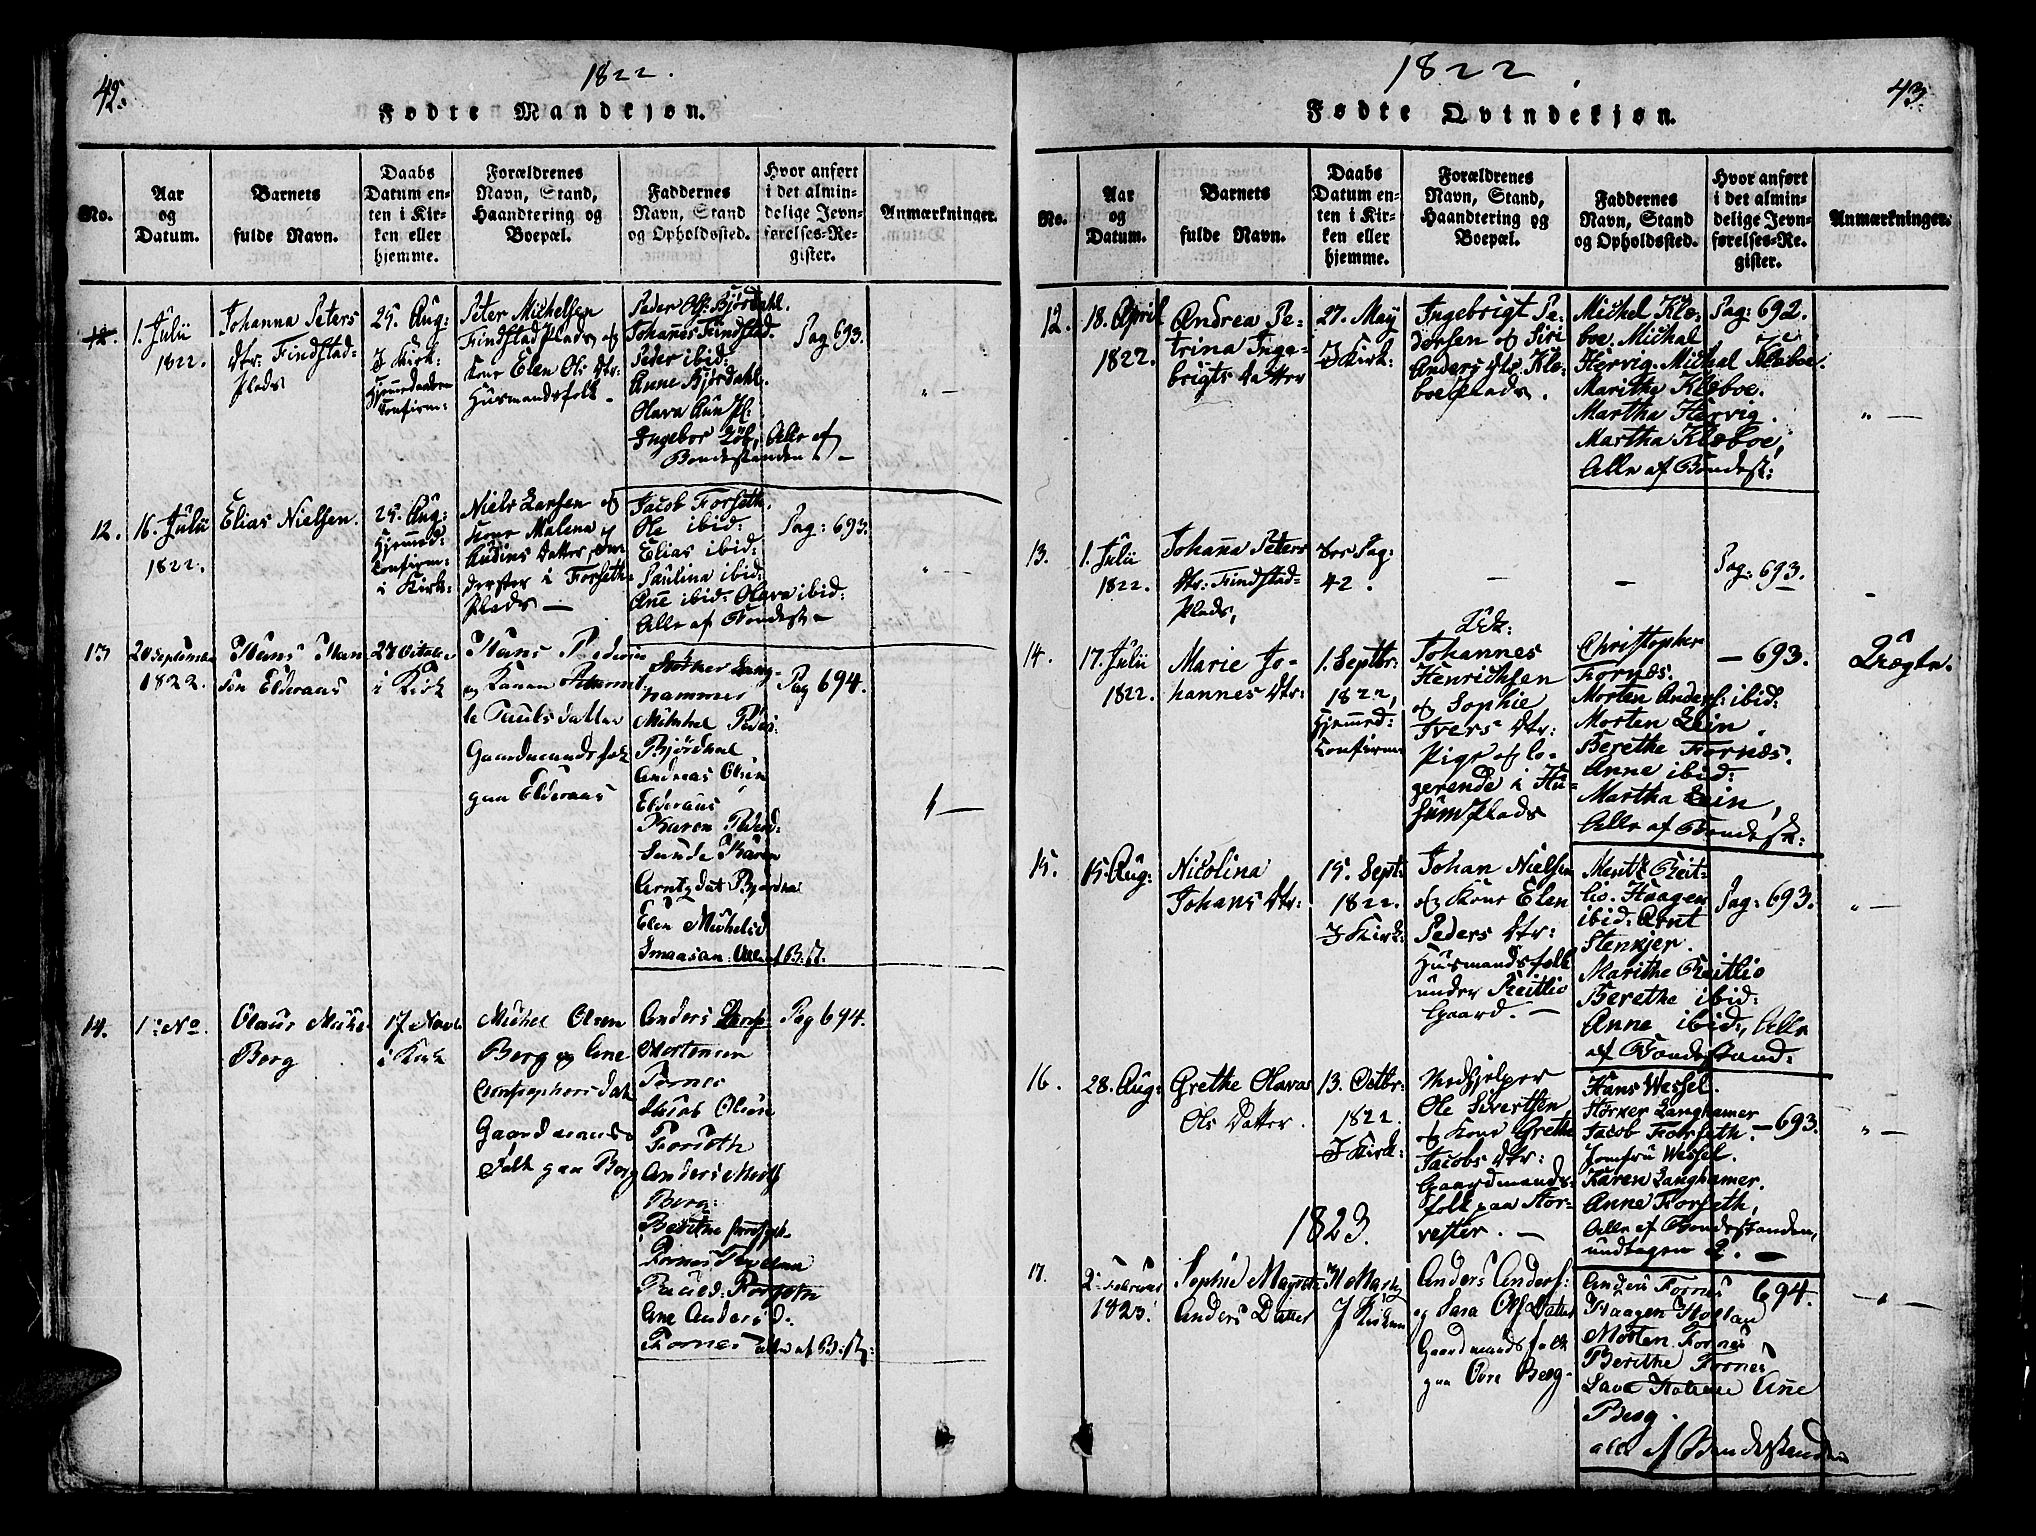 42.
1822.
Fødte Mandkjøn.
No.
Aar
og
Datum.
Barnets
fulde Navn.
Daabs
Datum en-
ten i Kir-
ken eller
hjemme.
Forældrenes
Navn, Stand,
Haandtering og
Boepæl.
Faddernes
Navn, Stand
og Opholdssted.
Hvor anført
i det almin-
delige Jevn-
førelses-Re-
gister.
Anmærkninger.
12.
1. Julii
1822.
Johanna Peters
Dtr: Findstad-
Plads
25. Aug:
I Kirk:
Hjemedøbt
Confirm:
Peter Michelsen
Findstad Plads og
Kone Elen Ols Dtr:
Husmandsfolk.
Peder Ols: Bjørdahl.
Johannes Findstad.
Peder ibid:
Anne Bjørdahl.
Olava
Ingebor Alle af
Bondestanden. -
Pag 693.
" -
12.
16. Julii
1822.
Elias Nielsen.
25. Aug:
Hjemmed:
Confirm:
i Kirk:
Niels Larsen og
Kone Malena
Audins Datter
i Forseth
Plads -
Jacob Forseth.
Ole ibid:
Elias ibid:
Paulina ibid:
Ane ibid: Olava ibid:
Alle af Bondest -
Pag: 693.
" -
13
20 September
1822.
Hans Han
sen Elderaas
27 October
i Kirk
Hans Peders
og Konen
le Pauls datter
Gaardmandsfolk
paa Elderaas
Størker Lang-
hammer
Michel Peders:
Bjørdhal
Andreas Olsen
Elderaas
Karen Peders:
Sunde Karen
Arntzdat Bjørdha
Elen Michelsd
Smaasan: Alle af B: St.
Pag 694.
" -
14.
1: No.
Olaus Michel
Berg
17 Novb
i Kirk
Michel Olsen
Berg og Ane
Christophers dat
Gaardmands
Folk paa Berg
Anders
Mortensen
Fornes
Jacob Olsen
Forseth
Anders
Berg:
Berithe
Fornes
Forseth
Ane Anders d:
Fornes alle af B: St:
Pag 694.
1822
43.
Fødte Qvindekjøn.
No.
Aar
og
Datum.
Barnets
fulde Navn.
Daabs
Datum en-
ten i Kir-
ken eller
hjemme.
Forældrenes
Navn, Stand,
Haandtering og
Boepæl.
Faddernes
Navn, Stand
og Opholdssted.
Hvor anført
i det almin-
delige Jevn-
førelses-Re-
gister.
Anmærkninger.
12.
18. April
1822.
Andrea Pe-
trina Inge-
brigts Datter
27. May
I Kirk:
Ingebrigt Pe-
dersen og Siri
Anders Dtr: Klæ-
boe Plads.
Michel Klæ-
boe. Michal
Hervig. Michal Klæboe.
Marithe Klæboe.
Martha Hervig.
Martha Klæboe,
Alle af Bondest:
Pag: 692.
" -
13.
1. Julii
1822.
Johana Peters
Dtr: Findstad-
Plads,
See Pag:
42.
-
-
Pag: 693.
-
14.
17. Julii
1822.
Marie Jo-
hannes Dtr:
1. Septbr:
1822,
Hjemmed:
Confirm
Johannes
Henrichsen
og Sophie
Ivers Dtr:
Pige og lo-
gerende i Hu-
sum Plads
Christopher
Fornæs.
Morten Anders: ibid:
Morten Lein.
Berethe Fornæs.
Anne ibid:
Martha Lein,
Alle af Bondest:
- 693.
Uægte.
15.
15. Aug:
Nicolina
Johans Dtr:
15. Sept:
1822.
I Kirk:
Johan Nielsen
og Kone Elen
Peders Dtr:
Husmandsfolk
under Reitlio
Gaard. -
Mentz Reit-
lio. Haagen
ibid: Arnt
Stenkjer.
Marithe Reitlio
Berethe ibid:
Anne ibid:, Alle
af Bondestand:
Pag: 693.
" -
16.
28. Aug:
Grethe Olava
Ols Datter.
13. Octbr:
1822.
I Kirk:
Medhjelper
Ole Sivertsen
og Kone Grethe
Jacobs Dtr:
Gaardmands-
folk paa Stor-
vetter. -
Hans Wessel.
Størker Langhamer
Jacob Forseth.
Jomfru Wessel.
Karen Langhamer.
Anne Forseth,
Alle af Bondestanden,
undtagen 2. -
- 693.
" -
1823.
17.
2: Februar
1823.
Sophie
Anders Datter
I Kirken
Anders Anders:
og Sara Ols Datter
Gaardmandsfolk
paa Øvre Berg.
Anders Fornes
Haagen
Morten Fornes
Berithe Fornes
Ane
Berg.
alle af Bondestanden
694.
" -